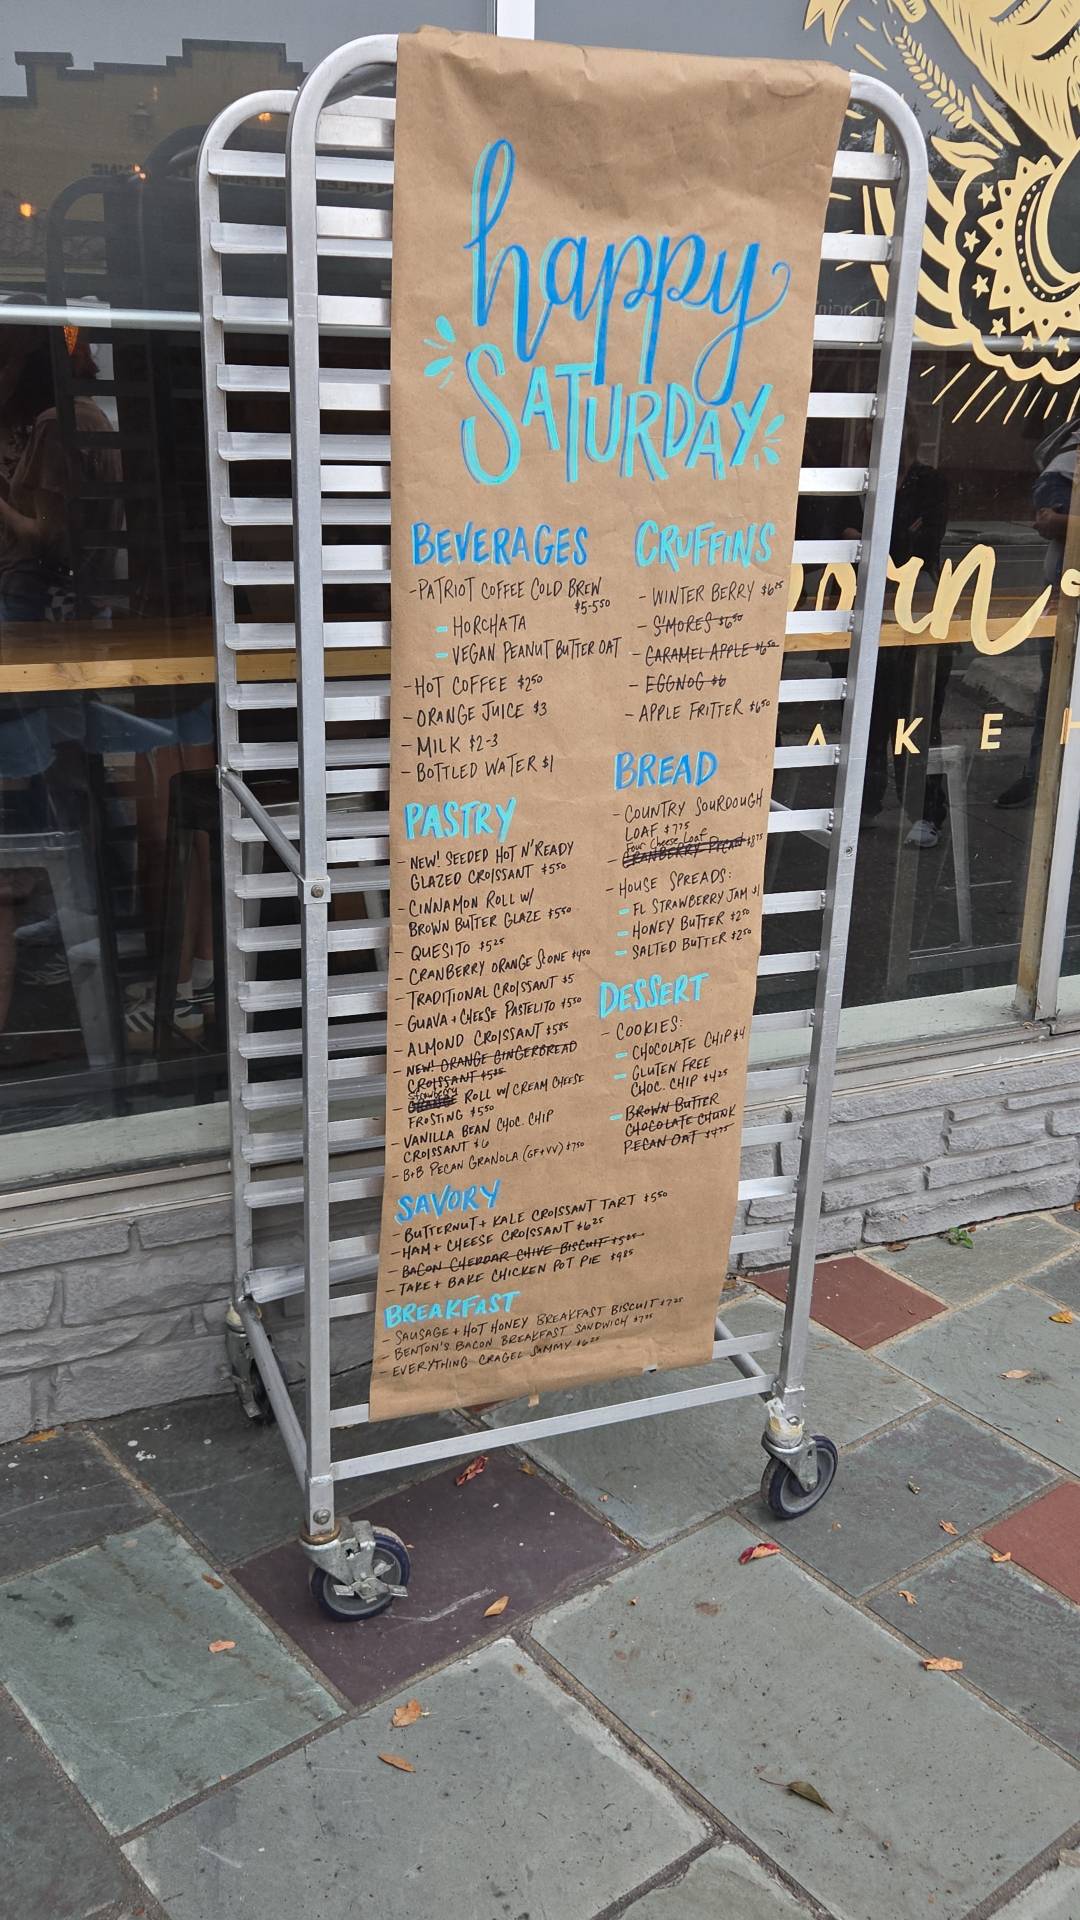 happy
SATURDAY
BEVERAGES
-PATRIOT COFFEE COLD BREW
$5-5.50
- HORCHATA
- VEGAN PEANUT BUTTER OAT
-HOT COFFEE $2.50
-ORANGE JUICE $3
-MILK $2-3
-BOTTLED WATER $1
PASTRY
-NEW! SEEDED HOT N'READY
GLAZED CROISSANT $5.50
-CINNAMON ROLL W/
BROWN BUTTER GLAZE $5.50
-QUESITO $5.25
-CRANBERRY ORANGE SCONE $4.50
-TRADITIONAL CROISSANT $5
-GUAVA + CHEESE PASTELITO $5.50
-ALMOND CROISSANT $5.85
-NEW! ORANGE GINGERBREAD
CROISSANT
Strawberry
- ORANGE ROLL W/ CREAM CHEESE
FROSTING $5.50
-VANILLA BEAN CHOC. CHIP
CROISSANT $6
-B+B PECAN GRANOLA (GF+VV) $7.50
SAVORY
-BUTTERNUT + KALE CROISSANT TART $5.50
-HAM + CHEESE CROISSANT $6.25
-BACON CHEDDAR CHIVE BISCUIT
-TAKE + BAKE CHICKEN POT PIE $9.85
BREAKFAST
-SAUSAGE + HOT HONEY BREAKFAST BISCUIT $7.25
-BENTON'S BACON BREAKFAST SANDWICH $7.25
-EVERYTHING CRAGEL SAMMY $6.25
CRUFFINS
-WINTER BERRY
-S'MORES $6.50
-CARAMEL APPLE $6.50
-EGGNOG $6
-APPLE FRITTER $6.50
BREAD
-COUNTRY SOURDOUGH
LOAF $7.75
Four Cheese Loaf
-CRANBERRY PECAN $8.75
-HOUSE SPREADS:
- FL STRAWBERRY JAM $1
- HONEY BUTTER $2.50
- SALTED BUTTER $2.50
DESSERT
-COOKIES:
- CHOCOLATE CHIP $4
- GLUTEN FREE
CHOC. CHIP $4.25
- BROWN BUTTER
CHOCOLATE CHUNK
PECAN OAT $4.75
orn
AKEH